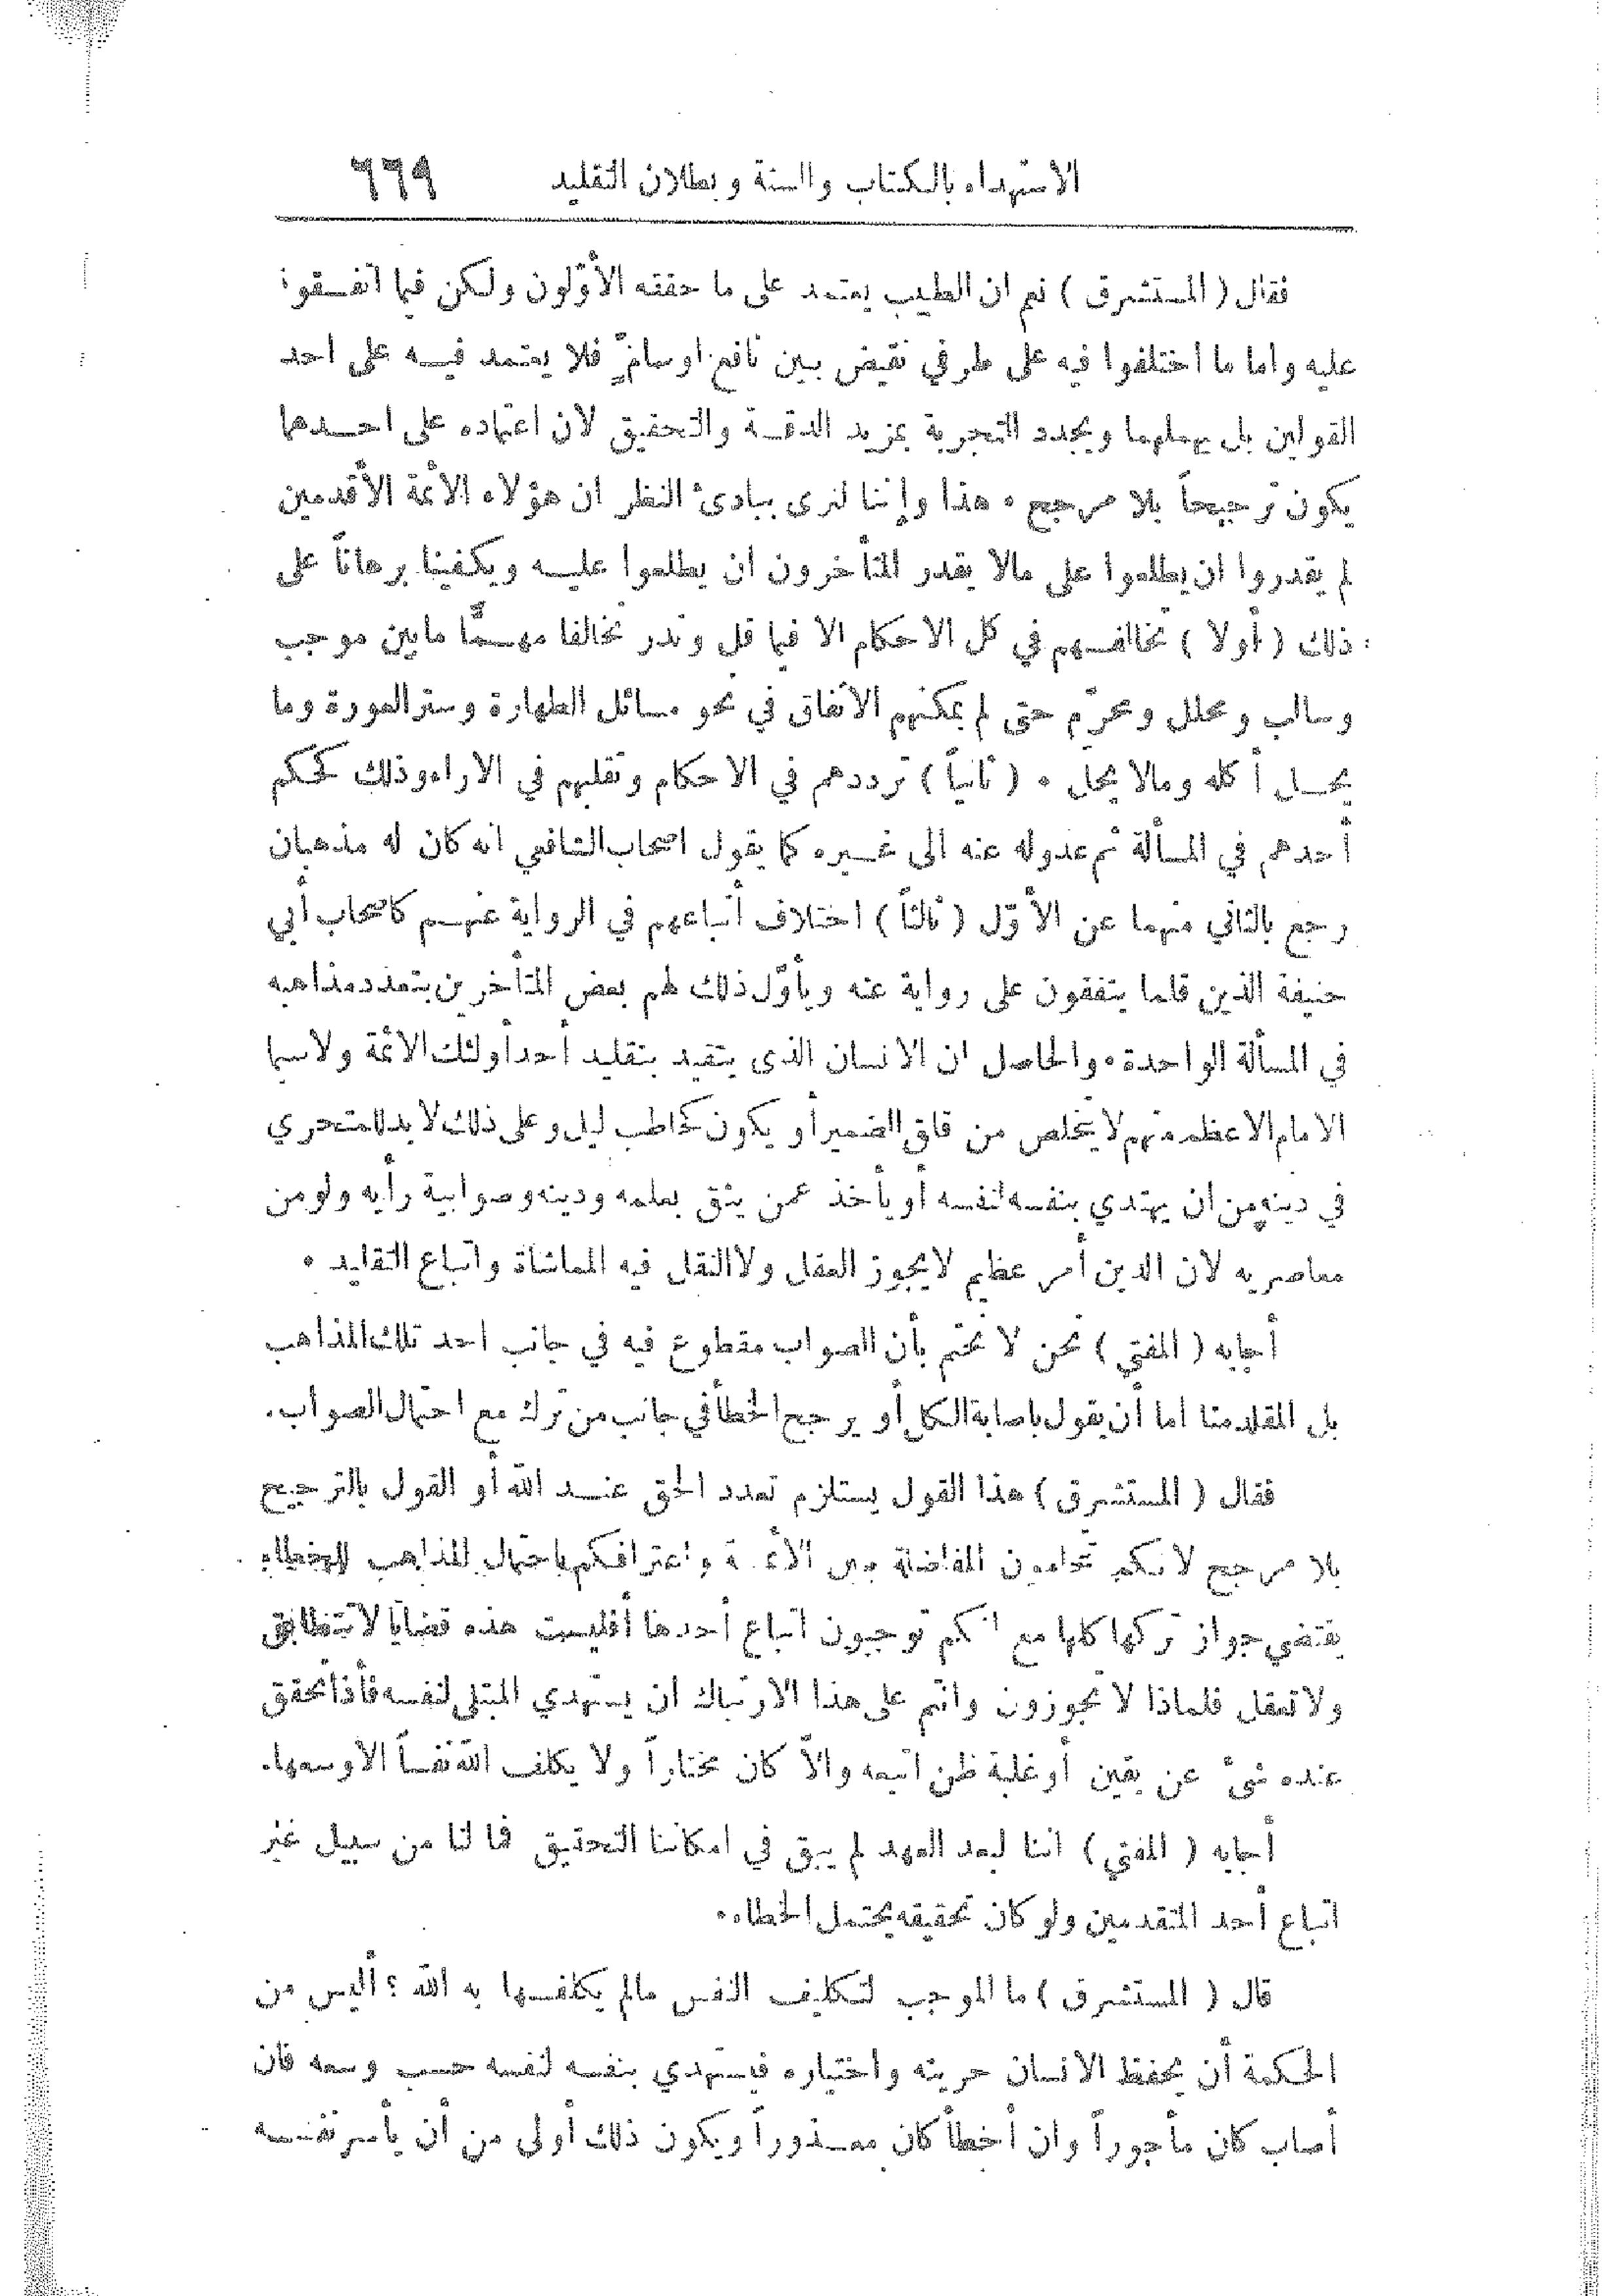 الاستهداء بالكتاب والسنة وبطلان التقليد ٦٦٩
فقال ( المستشرق ) نعم ان الطبيب يعتمد على ما حققه الأوّلون ولكن فيما اتفقوا
عليه واما ما اختلفوا فيه على طرفي نقيض بين نافع او سامّ فلا يعتمد فيه على احد
القولين بل يهملهما ويجدد التجربة بمزيد الدقة والتحقيق لان اعتماده على احدهما
يكون ترجيحاً بلا مرجح ٠ هذا وإننا لنرى ببادئ النظر ان هؤلاء الائمة الأقدمين
لم يقدروا ان يطلعوا على مالا يقدر المتأخرون ان يطلعوا عليه ويكفينا برهاناً على
ذلك ( أولا ) تخالفهم في كل الاحكام الا فيما قل وندر تخالفا مهمًّا مابين موجب
وسالب ومحلل ومحرّم حتى لم يمكنهم الاتفاق في نحو مسائل الطهارة وستر العورة وما
يحل أكله ومالا يحل ٠ ( ثانياً ) ترددهم في الاحكام وتقلبهم في الاراء وذلك كحكم
أحدهم في المسألة ثم عدوله عنه الى غيره كما يقول اصحاب الشافعي انه كان له مذهبان
رجع بالثاني منهما عن الأوّل ( ثالثاً ) اختلاف أتباعهم في الرواية عنهم كاصحاب أبي
حنيفة الذين قلما يتفقون على رواية عنه ويأوّل ذلك لهم بعض المتأخرين بتعدد مذاهبه
في المسألة الواحدة ٠ والحاصل ان الانسان الذى يتقيد بتقليد أحد أولئك الائمة ولاسيما
الامام الاعظم منهم لا يتخلص من قلق الضمير أو يكون كحاطب ليل وعلى ذلك لا بد للمتحري
في دينه من ان يهتدي بنفسه لنفسه أو يأخذ عمن يثق بعلمه ودينه وصوابية رأيه ولو من
معاصريه لان الدين أمر عظيم لا يجوز العقل ولا النقل فيه المماشاة واتباع التقاليد ٠
أجابه ( المفتي ) نحن لا نحتم بأن الصواب مقطوع فيه في جانب احد تلك المذاهب
بل المقلد منا اما أن يقول باصابة الكل أو يرجح الخطأ في جانب من ترك مع احتمال الصواب.
فقال ( المستشرق ) هذا القول يستلزم تعدد الحق عند الله أو القول بالترجيح
بلا مرجح لانكم تحامون المفاضلة بين الأئمة واعترافكم باحتمال المذاهب للخطاء
يقتضي جواز تركها كلها مع انكم توجبون اتباع أحدها أفليست هذه قضايا لا تتطابق
ولا تعقل فلماذا لا تجوزون وانتم على هذا الارتباك ان يستهدي المبتلى لنفسه فأذا تحقق
عنده شئ عن يقين أو غلبة ظن اتبعه والاّ كان مختاراً ولا يكلف الله نفساً الا وسعها.
أجابه ( المفتي ) اننا لبعد العهد لم يبق في امكاننا التحقيق فما لنا من سبيل غير
اتباع أحد المتقدمين ولو كان تحقيقه يحتمل الخطاء.
قال ( المستشرق ) ما الموجب لتكليف النفس مالم يكلفها به الله ؟ أليس من
الحكمة أن يحفظ الانسان حريته واختياره فيستهدي بنفسه لنفسه حسب وسعه فان
أصاب كان مأجوراً وان أخطأ كان معذوراً ويكون ذلك أولى من أن يأسر نفسه